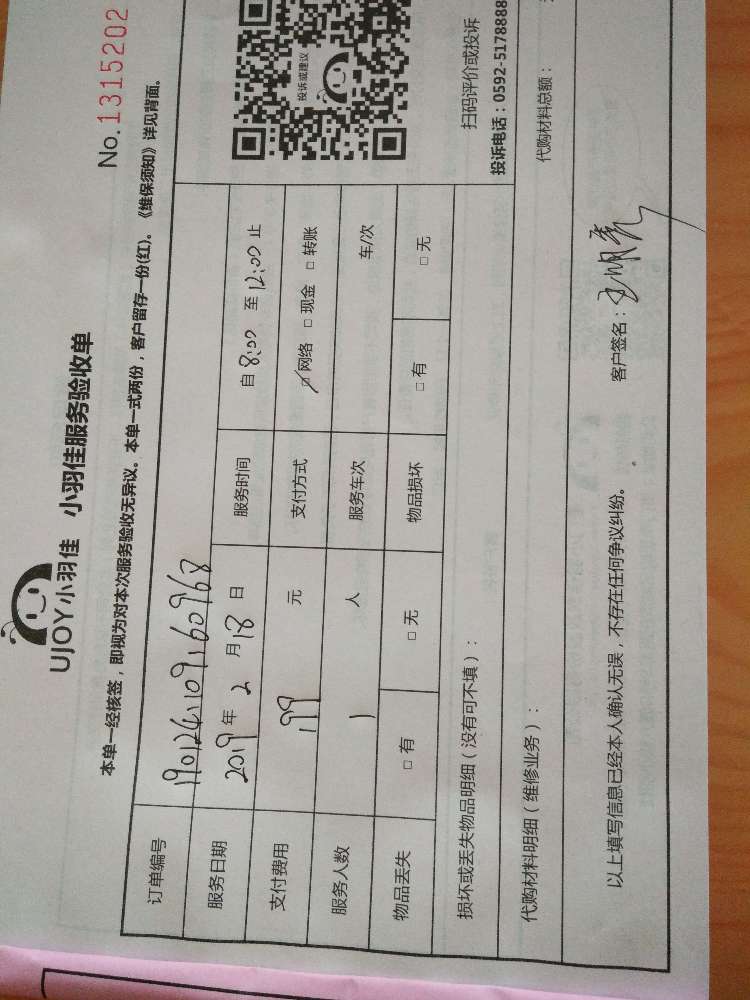 UJOY小羽佳 小羽佳服务验收单
No.1315202
本单一经核签，即视为对本次服务验收无异议。本单一式两份，客户留存一份(红)。《维保须知》详见背面。
订单编号 190124109160968
服务日期 2019年2月18日 服务时间 自8:00至12:00止
支付费用 199元 支付方式 □网络 □现金 □转账
服务人数 1人 服务车次 车/次
物品丢失 □有 □无 物品损坏 □有 □无
投诉或建议
扫码评价或投诉
投诉电话：0592-5178888
损坏或丢失物品明细（没有可不填）：
代购材料明细（维修业务）： 代购材料总额：
以上填写信息已经本人确认无误，不存在任何争议纠纷。 客户签名：